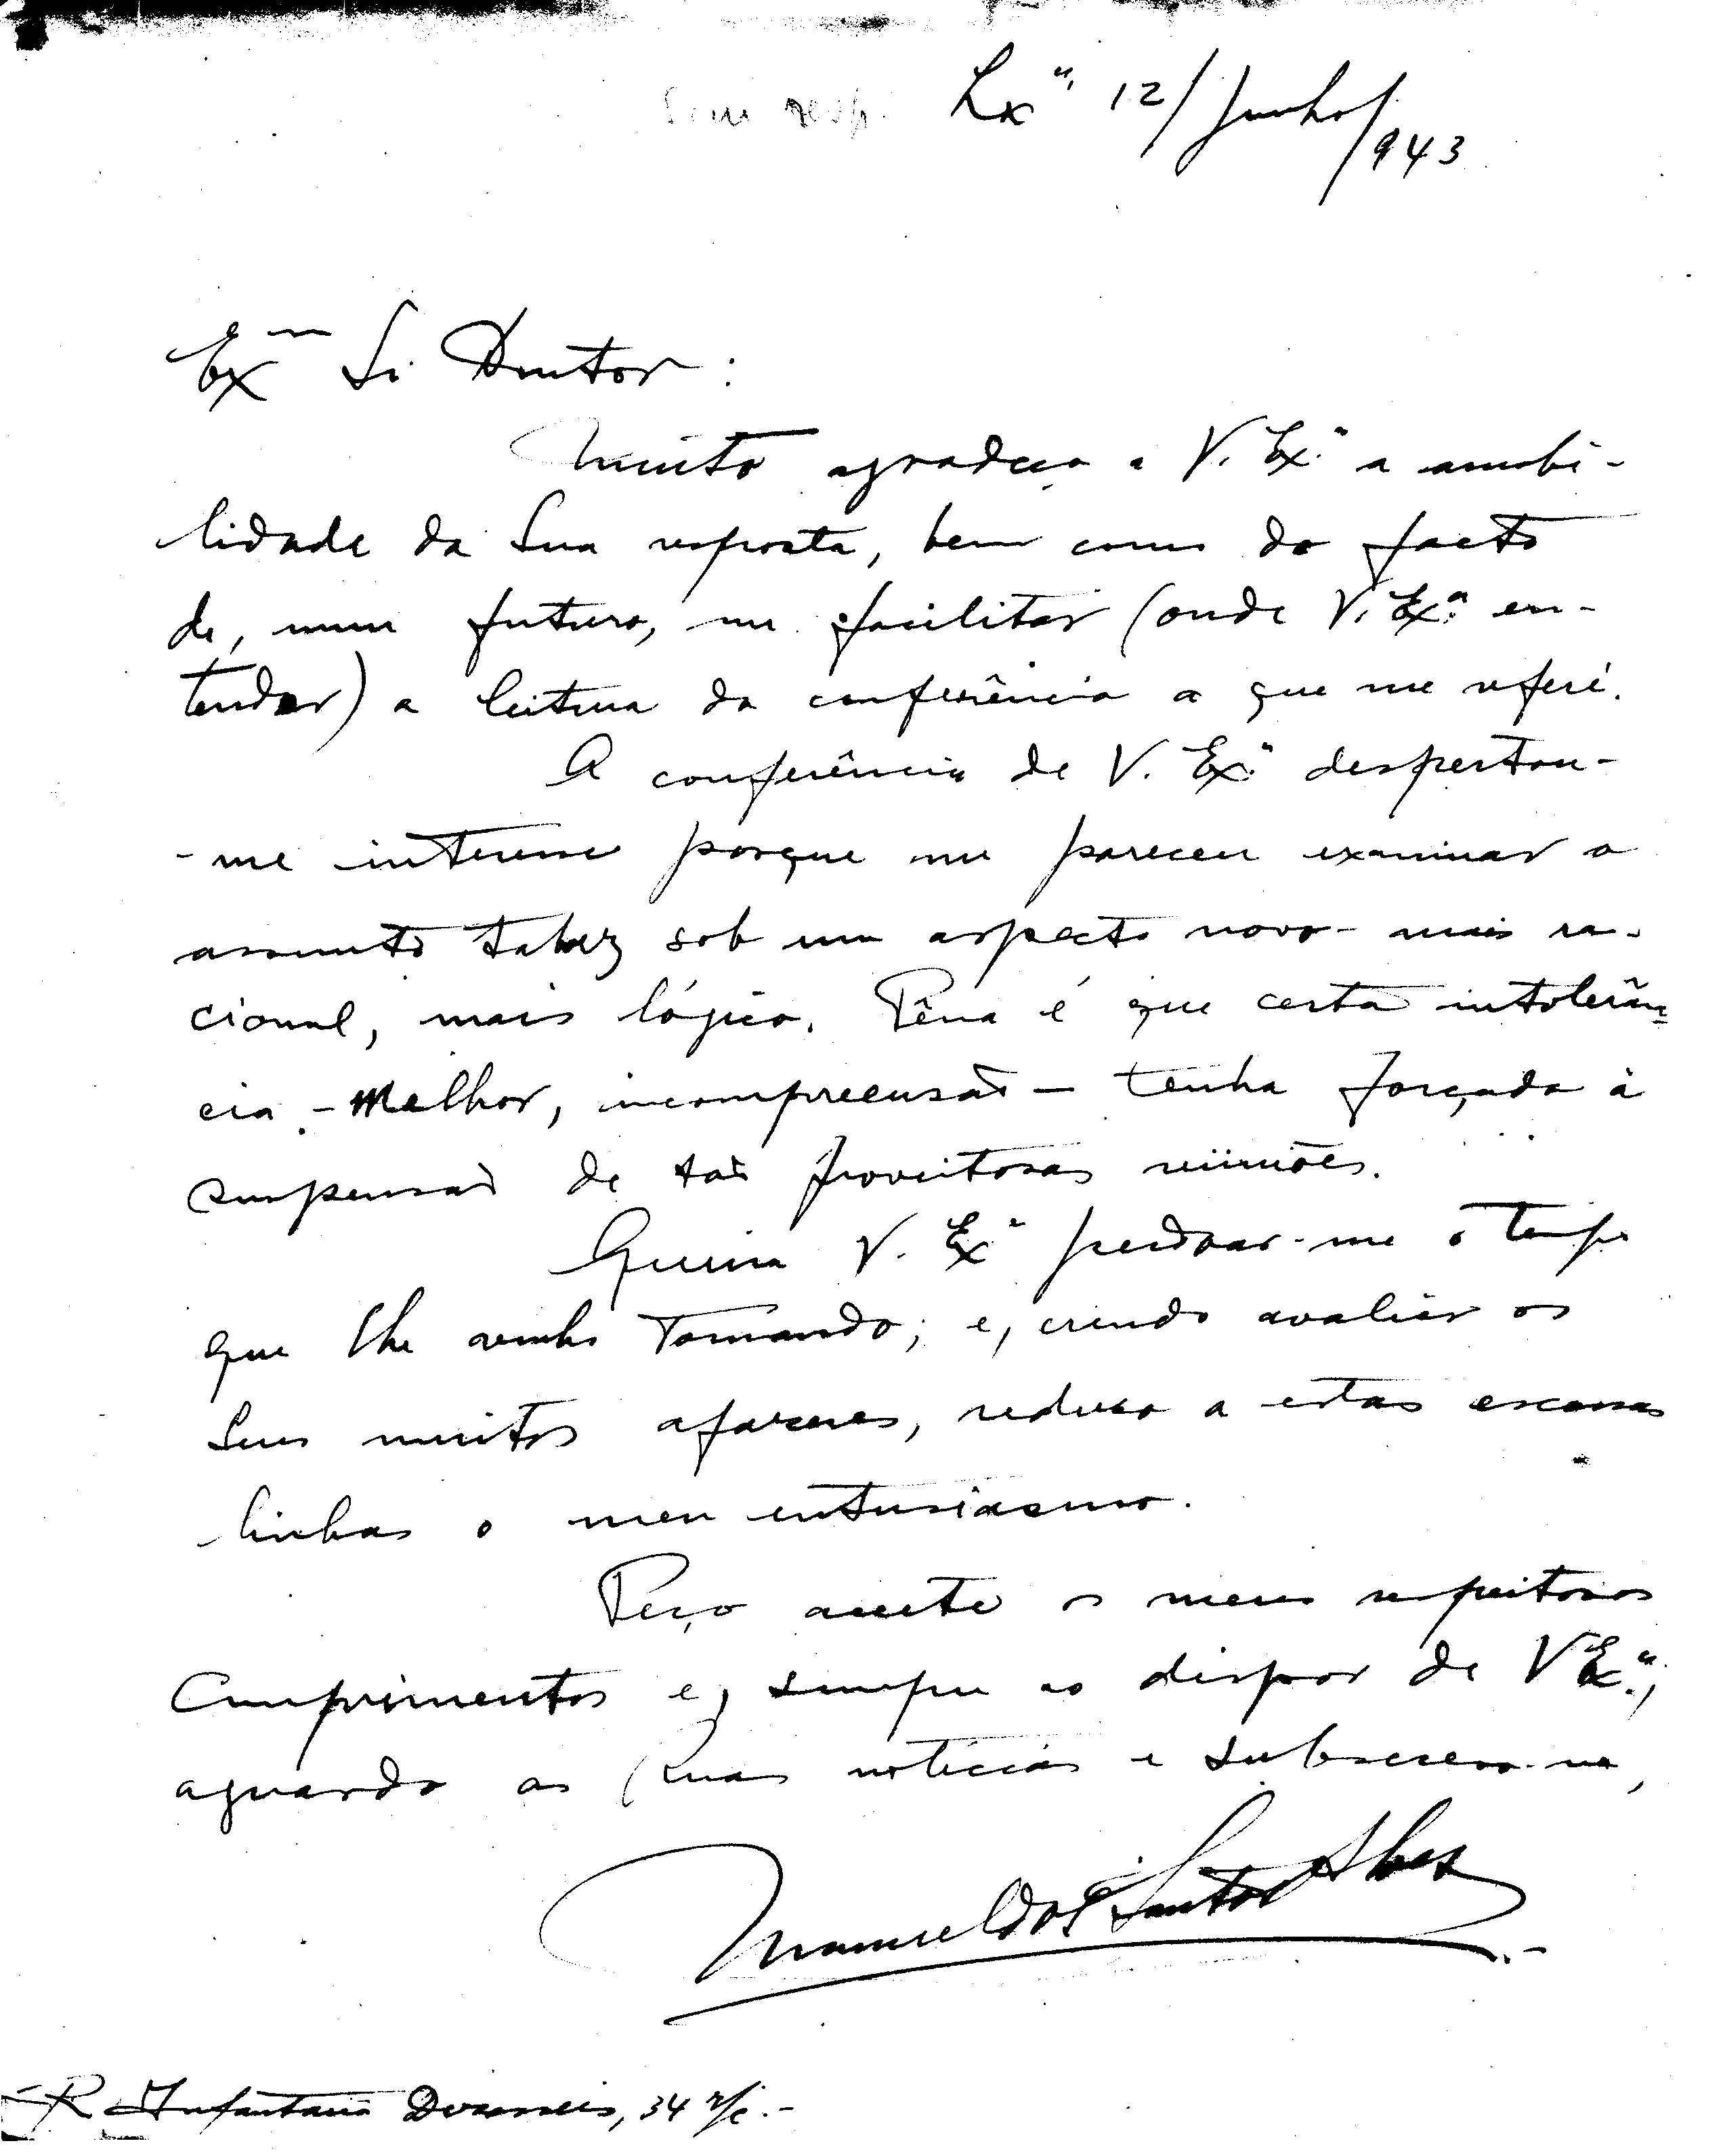 Sem resp. Lxª, 12/Junho/943
Exmº Sr. Doutor:
Muito agradeço a V. Exª a amabi-
lidade da Sua resposta, bem como do facto
de, num futuro, me facilitar (onde V. Exª en-
tender) a leitura da conferência a que me referi.
A conferência de V. Exª despertou-
-me interesse porque me pareceu examinar o
assunto talvez sob um aspecto novo - mais ra-
cional, mais lógico. Pêna é que certa intolerân-
cia - melhor, incompreensão - tenha forçado à
suspensão de tão proveitosas reüniões.
Queira V. Exª perdoar-me o tempo
que lhe venho tomando; e, crendo avaliar os
Seus muitos afazeres, reduzo a estas escassas
linhas o meu entusiásmo.
Peço aceite os meus respeitosos
cumprimentos e, sempre ao dispor de V Exª,
aguardo as Suas notícias e subscrevo-me,
Manuel dos Santos Alves
R Infantaria Dezasseis, 34 r/c.-